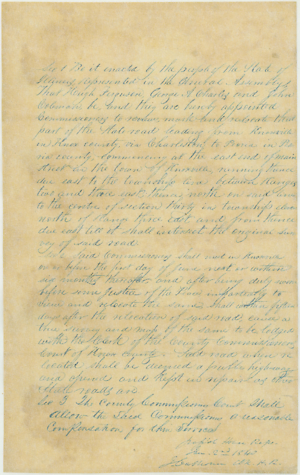 Sec 1 Be it enacted by the people of the State of
Illinois represented in the General Assembly
That Hugh Ferguson, George A. Charles and John
be and they are hereby appointed
Commissioners to review, mark and relocate that
part of the State road leading from
in county, via Charleston to Peoria in
county, commencing at the east end of main
street in the town of Knoxville running thence
due east to the
line and three
to the center of section thirty in township
north of Range three east and from thence
due east till it shall intersect the original sur
vey of said road
Sec 2 Said Commissioners shall meet in Knoxville
on or before the first day of June next or within
six months thereafter and after being duly sworn
before some justice of the peace
view and relocate the same, and within fifteen
days after the relocation of said road, cause a
survey and map of the same to be lodged
with the Clerk of the County Commissioners
Court of Knox County. Said road when re
located shall be deemed a public highway
and opened and kept in repair as other
State roads are
Sec 3 The County Commissioners Court shall
allow the said Commissioners a reasonable
compensation for their services
Passed House Reps.
H. R.